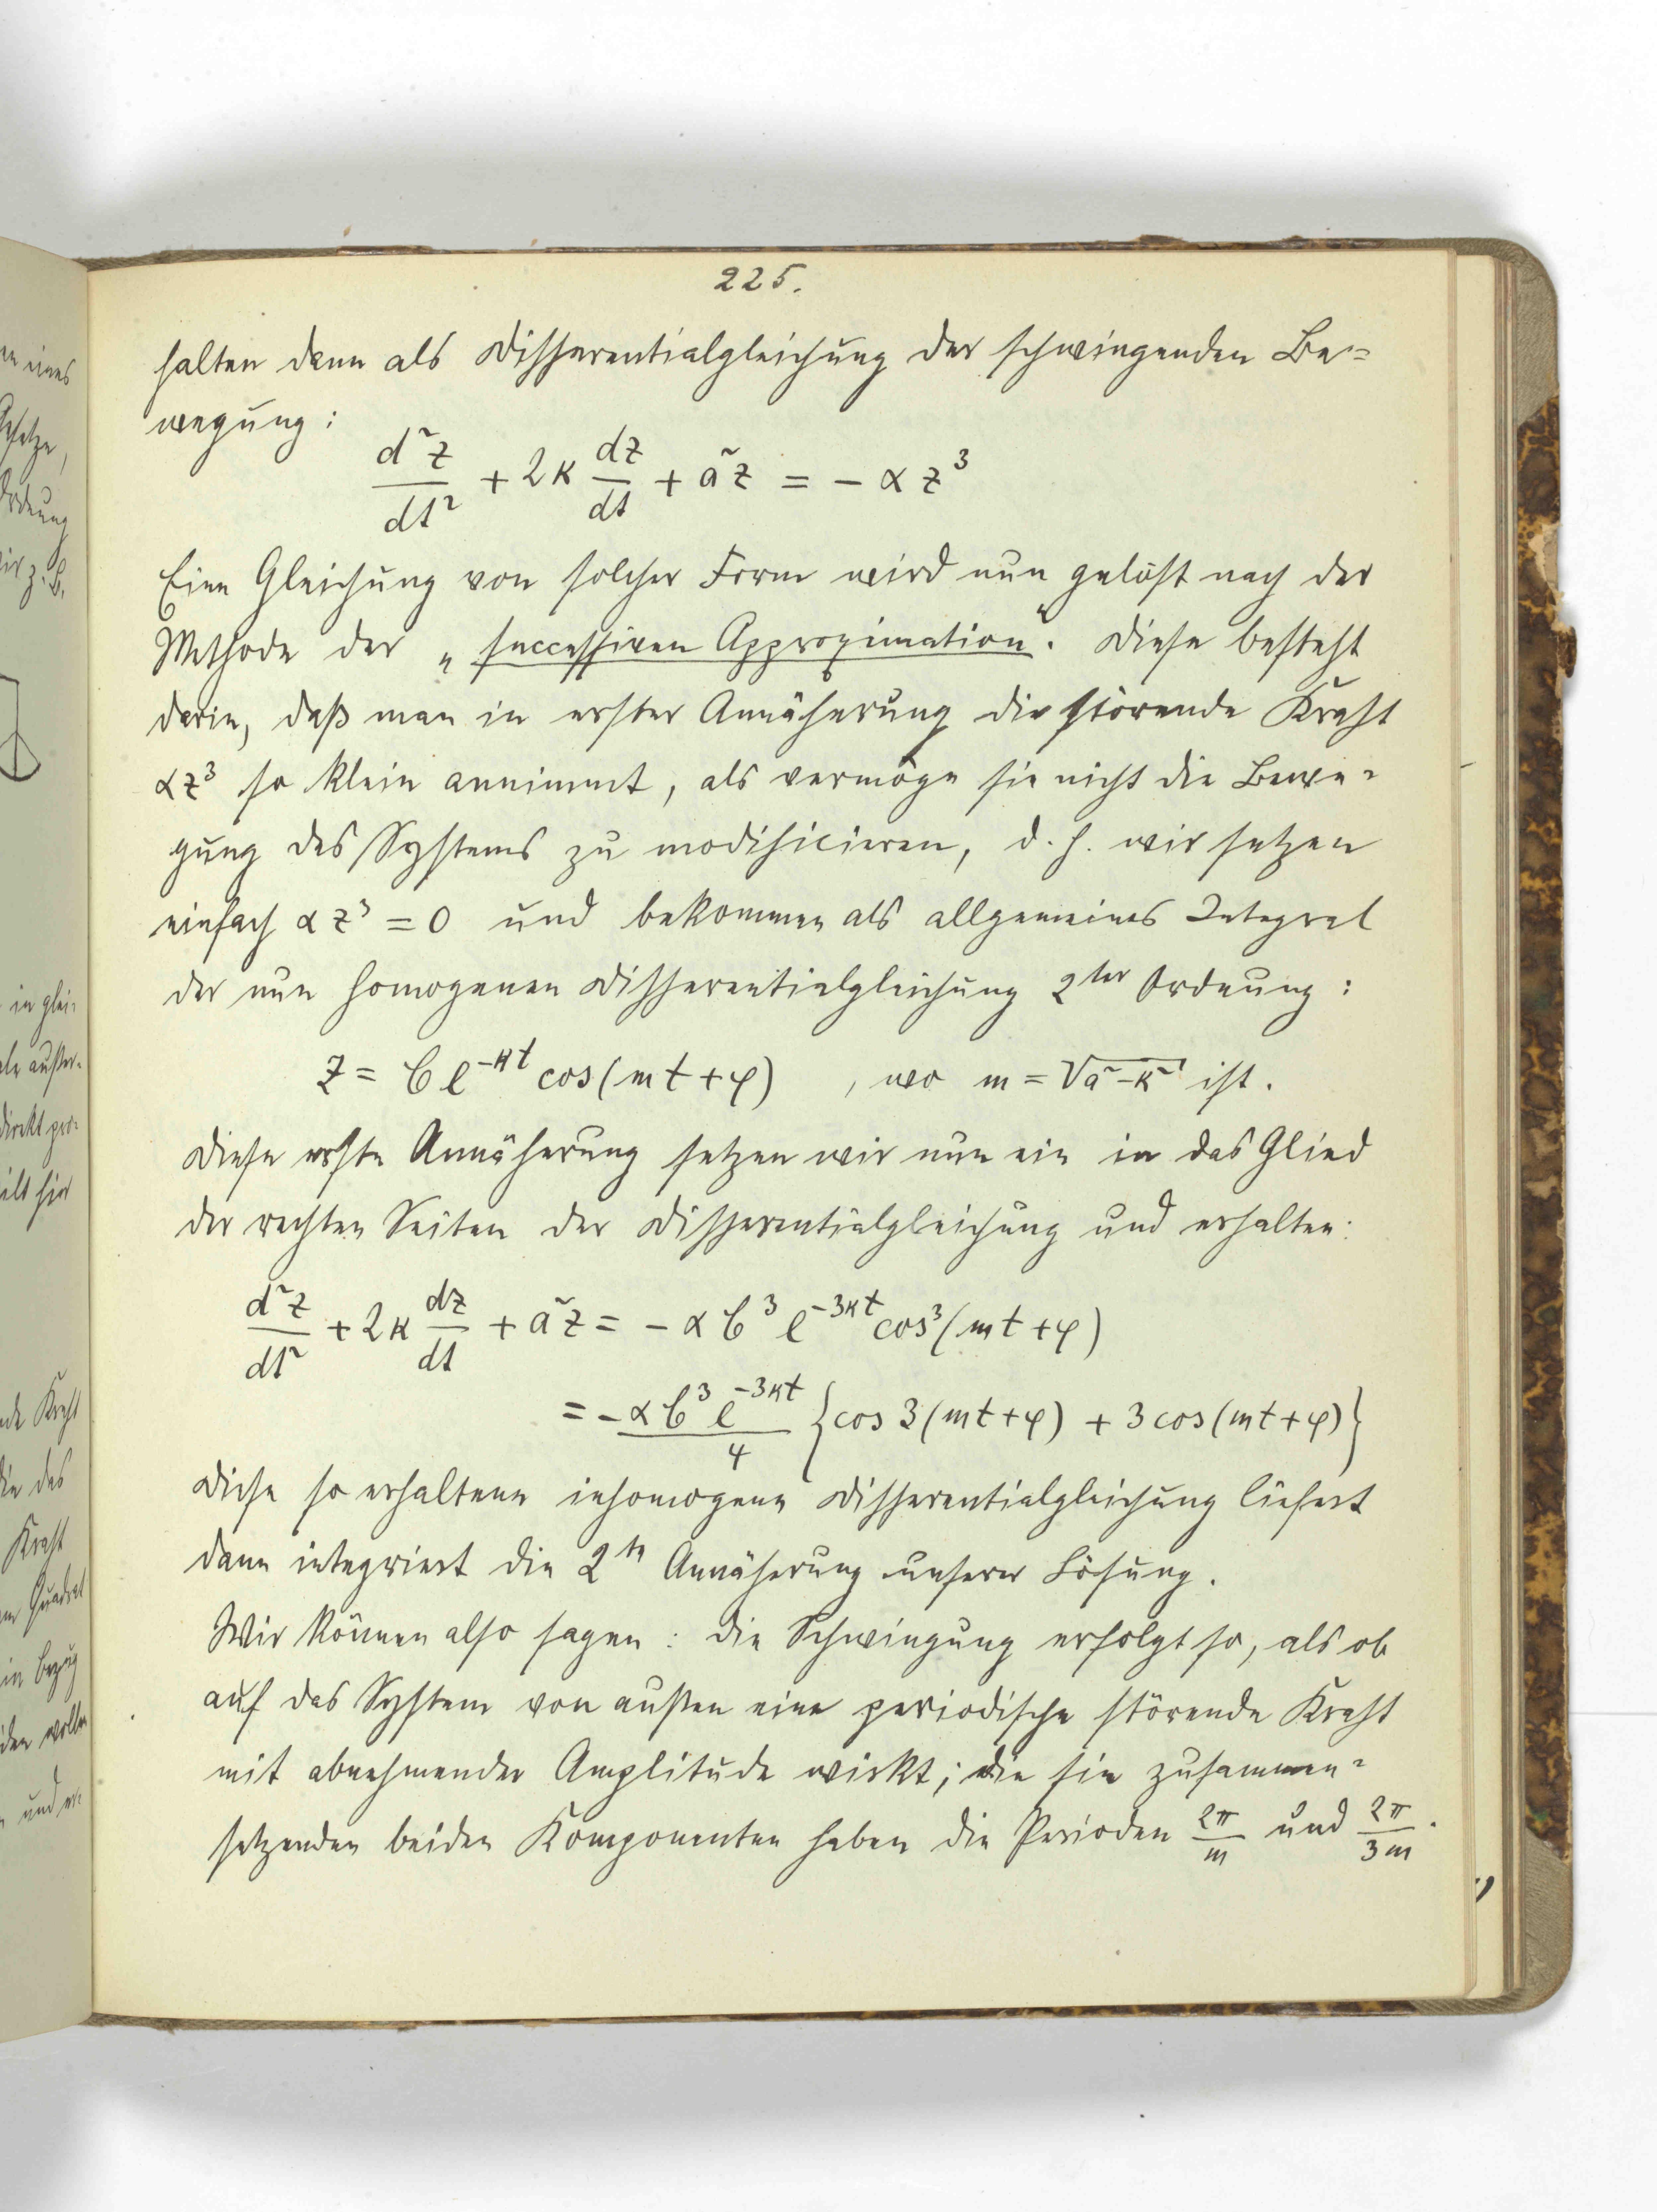 225.
halten dann als Differentialgleichung der schwingenden Be=
wegung:
d²z/dt² + 2κ dz/dt + a²z = - αz³
Eine Gleichung von solcher Form wird nun gelöst nach der
Methode der „successiven Approximation". Diese besteht
darin, daß man in erster Annäherung die störende Kraft
αz³ so klein annimmt, als vermöge sie nicht die Bewe=
gung des Systems zu modificieren, d. h. wir setzen
einfach αz³ = 0 und bekommen als allgemeines Integral
der nun homogenen Differentialgleichung 2ter Ordnung:
z = C e^{-κt} cos(mt+φ) , wo m = √(a²-κ²) ist.
Diese erste Annäherung setzen wir nun ein in das Glied
der rechten Seiten der Differentialgleichung und erhalten:
d²z/dt² + 2κ dz/dt + a²z = - αC³ e^{-3κt} cos³(mt+φ)
= - αC³ e^{-3κt}/4 {cos 3(mt+φ) + 3cos(mt+φ)}
Diese so erhaltene inhomogene Differentialgleichung liefert
dann integriert die 2te Annäherung unserer Lösung.
Wir können also sagen: die Schwingung erfolgt so, als ob
auf das System von außen eine periodische störende Kraft
mit abnehmender Amplitude wirkt; die sie zusammen=
setzenden beiden Komponenten haben die Perioden 2π/m und 2π/3m.